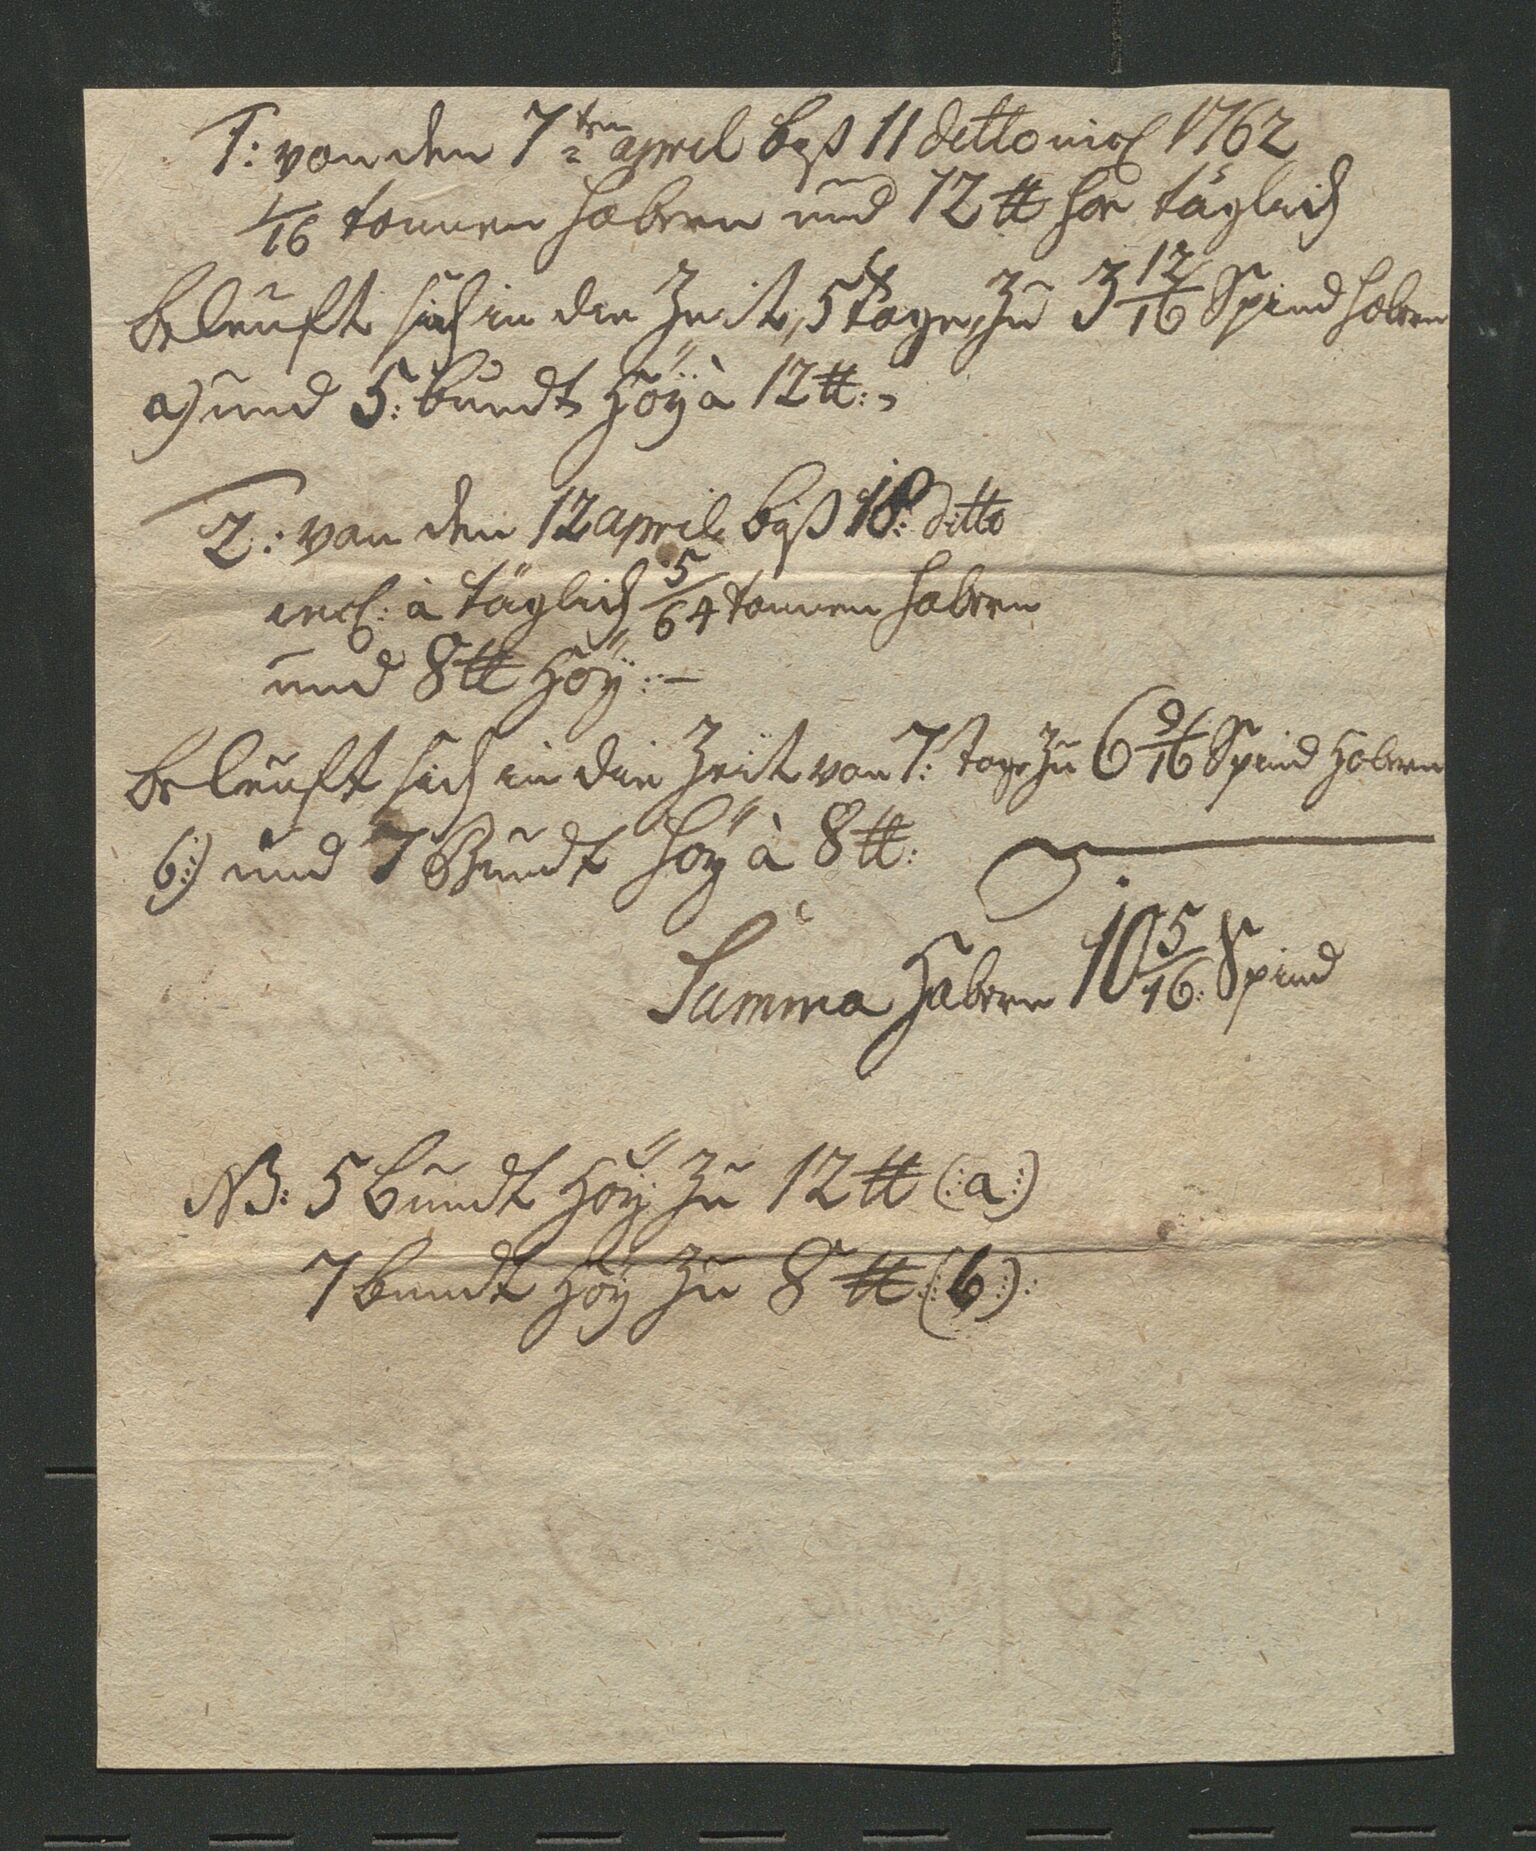 1: von den 7ten april biß 11 ditto incl 1762
1/16 tonnen habern und 12 ℔ hoe täglich
beleuft sich in die Zeit, 5 tage, zu 3 12/16 Spind habern
a) und 5: bundt Höÿ à 12 ℔:,
2: von den 12 april biß 18: ditto
incl: à täglich 5/64 tonnen habern
und 8 ℔ Höÿ: —
beleuft sich in die Zeit von 7: tage zu 6 9/16 Spind Habern
b:) und 7 Bundt höÿ à 8 ℔:
Summa Habern 10 5/16: Spind
NB: 5 bundt Höÿ zu 12 ℔ (:a:)
7 bundt Höÿ zu 8 ℔ (:b:):